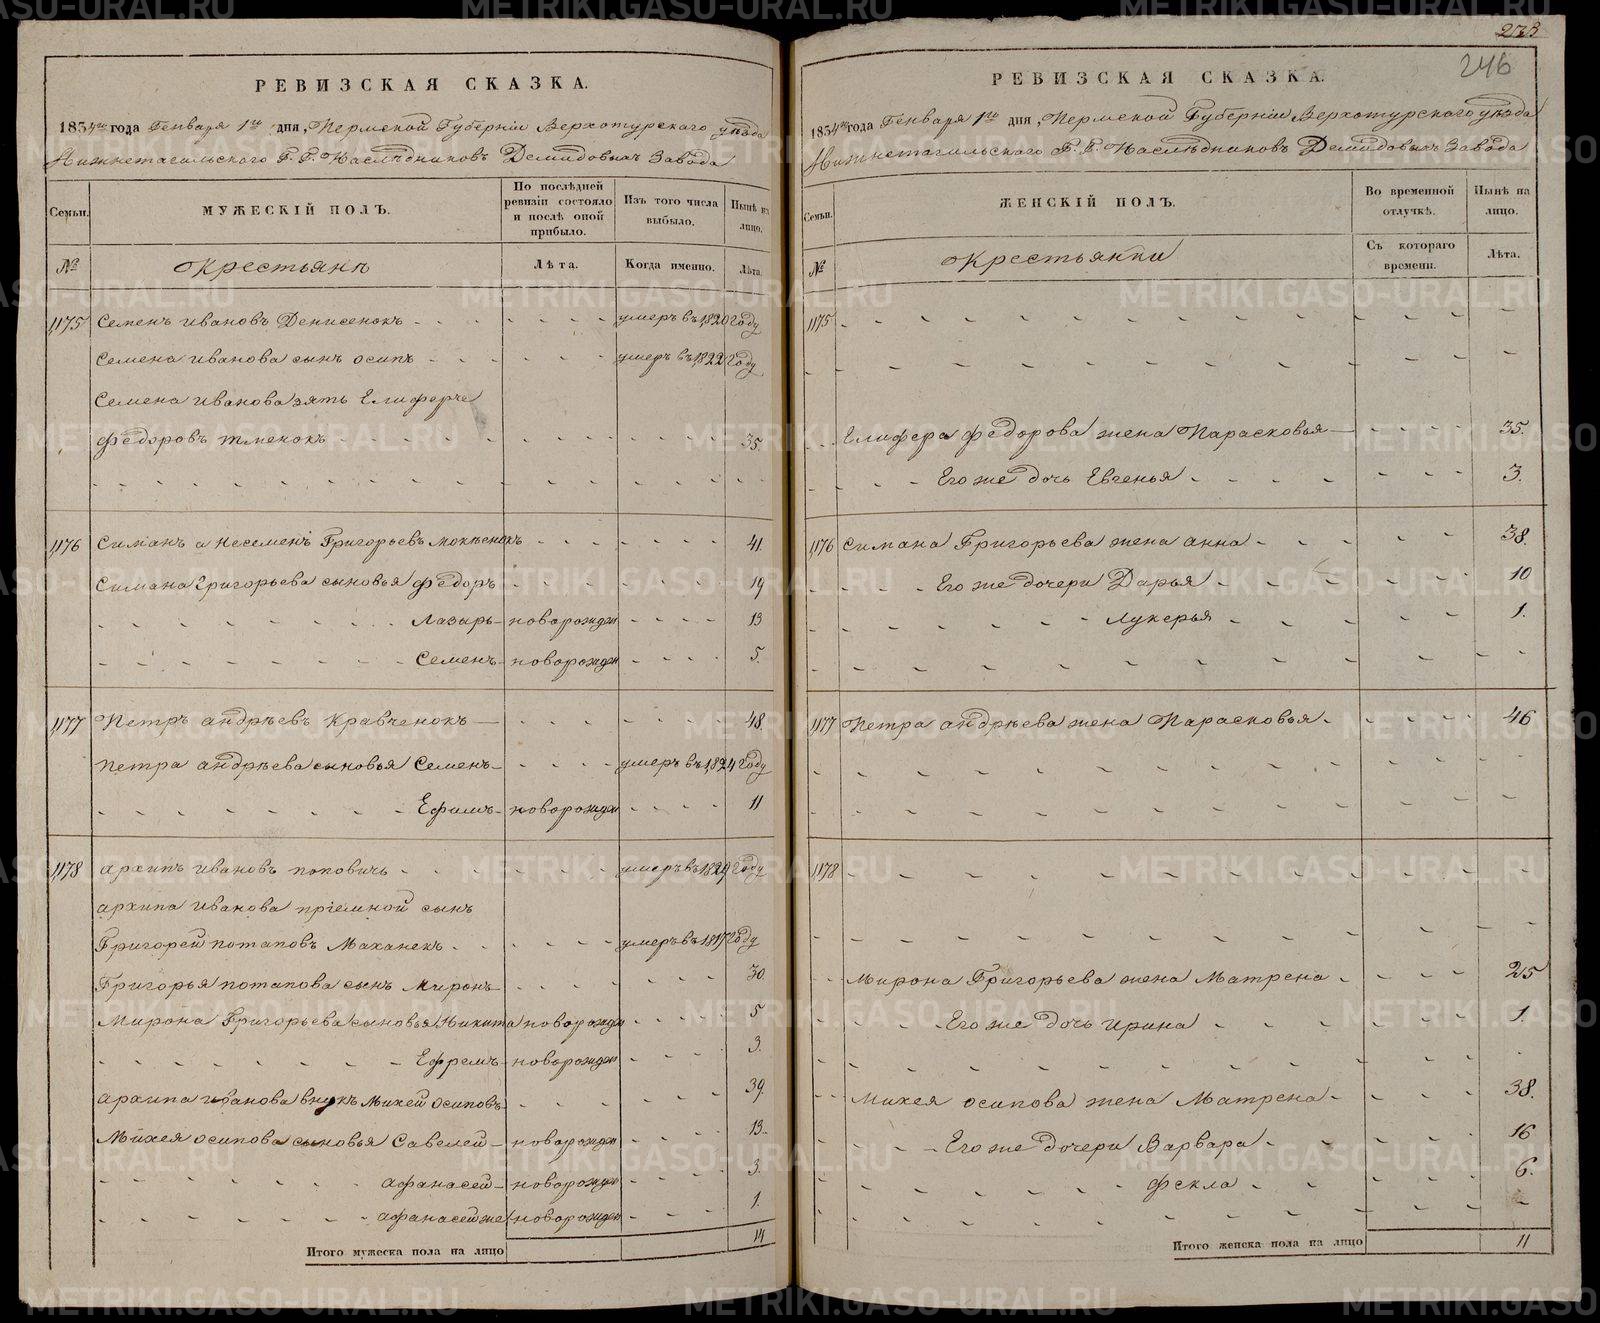 РЕВИЗСКАЯ СКАЗКА.
1834го года Генваря 1го дня, Пермской Губернiи Верхотурскаго уѣзда
Нижнетагильскаго Г. Г. Наслѣдниковъ Демидовыхъ Завода
Семьи.
МУЖЕСКIЙ ПОЛЪ.
По послѣдней ревизiи состояло и послѣ оной прибыло.
Изъ того числа выбыло.
Нынѣ на лицо.
№
Крестьянъ
Лѣта.
Когда именно.
Лѣта.
1175 Семенъ Ивановъ Денисенокъ умеръ въ 1820 Году
Семена Иванова сынъ Осипъ умеръ въ 1822 Году
Семена Иванова зять Елиферье
Федоровъ 35.
1176 Симанъ а не Семенъ Григорьевъ Мокѣенокъ 41.
Симана Григорьева сыновья Федоръ 19
Лазарь новорожден 13
Семенъ новорожден 5.
1177 Петръ Андрѣевъ Кравченокъ 48.
Петра Андрѣева сыновья Семенъ умеръ въ 1824 Году
Ефимъ новорожден 11
1178 Архипъ Ивановъ Поповичь умеръ въ 1829 Году
Архипа Иванова прiемной сынъ
Григорей Потаповъ Маханекъ умеръ въ 1817 Году
Григорья Потапова сынъ Миронъ 30.
Мирона Григорьева сыновья Никита новорожден 5
Ефремъ новорожден 3.
Архипа Иванова внукъ Михей Осиповъ 39.
Михея Осипова сыновья Савелей новорожден 13.
Афанасей новорожден 3.
Афанасей же новорожден 1.
Итого мужеска пола на лицо 14
273
246
РЕВИЗСКАЯ СКАЗКА.
1834го года Генваря 1го дня, Пермской Губернiи Верхотурскаго уѣзда
Нижнетагильскаго Г. Г. Наслѣдниковъ Демидовыхъ Завода
Семьи.
ЖЕНСКIЙ ПОЛЪ.
Во временной отлучкѣ.
Нынѣ на лицо.
№
Крестьянки
Съ котораго времени.
Лѣта.
1175
Елифера Федорова жена Парасковья 35.
Его же дочь Евгенья 3.
1176 Симана Григорьева жена Анна 38.
Его же дочери Дарья 10
Лукерья 1.
1177 Петра Андрѣева жена Парасковья 46
1178
Мирона Григорьева жена Матрена 25
Его же дочь Ирина 1.
Михея Осипова жена Матрена 38.
Его же дочери Варвара 16
Фекла 6.
Итого женска пола на лицо 11
METRIKI.GASO-URAL.RU